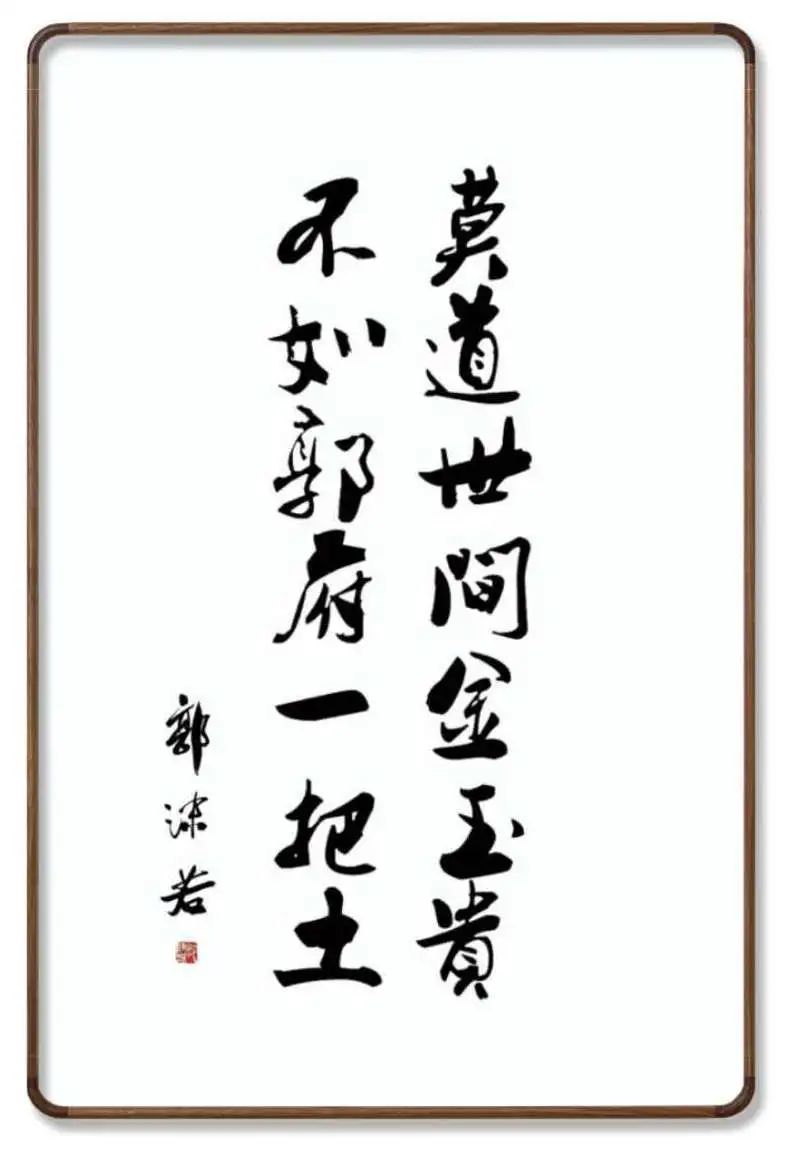 莫道世間金玉貴
不如郭府一把土
郭沫若